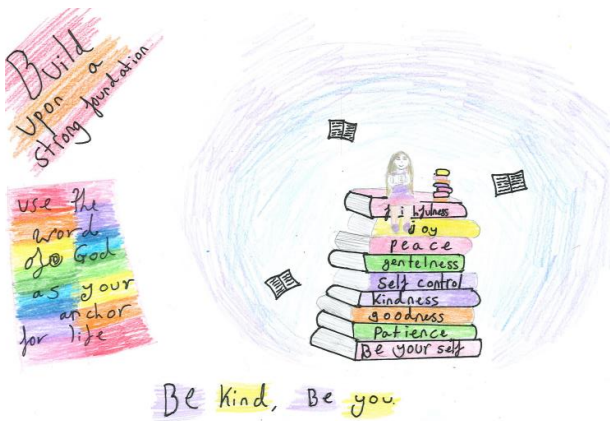 Build
upon a
strong foundation
use the
word
of God
as your
anchor
for life
joy
peace
gentelness
Self control
Kindness
goodness
Patience
Be your self
Be Kind, Be you.